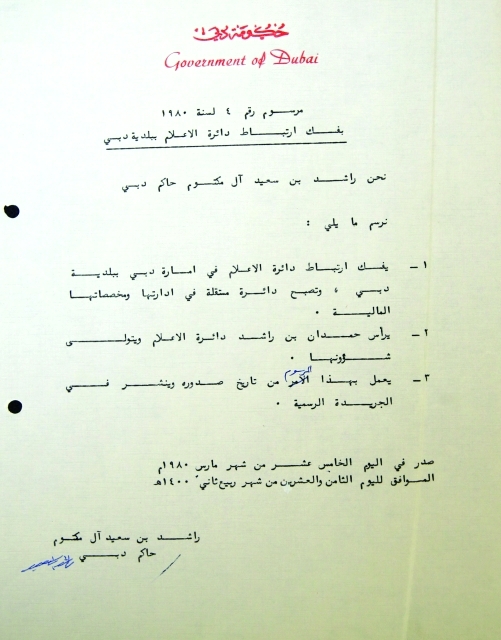 حكومة دبي
Government of Dubai
مرسوم رقم ٤ لسنة ١٩٨٠
بفك ارتباط دائرة الاعلام ببلدية دبي
نحن راشد بن سعيد آل مكتوم حاكم دبي
نرسم ما يلي :
١ - يفك ارتباط دائرة الاعلام في امارة دبي ببلدية
دبي ، وتصبح دائرة مستقلة في ادارتها ومخصصاتها
المالية ٠
٢ - يرأس حمدان بن راشد دائرة الاعلام ويتولى
شؤونها ٠
المرسوم
٣ - يعمل بهذا الأمر من تاريخ صدوره وينشر في
الجريدة الرسمية ٠
صدر في اليوم الخامس عشر من شهر مارس ١٩٨٠م
الموافق لليوم الثامن والعشرين من شهر ربيع ثاني ١٤٠٠هـ
راشد بن سعيد آل مكتوم
حاكم دبي